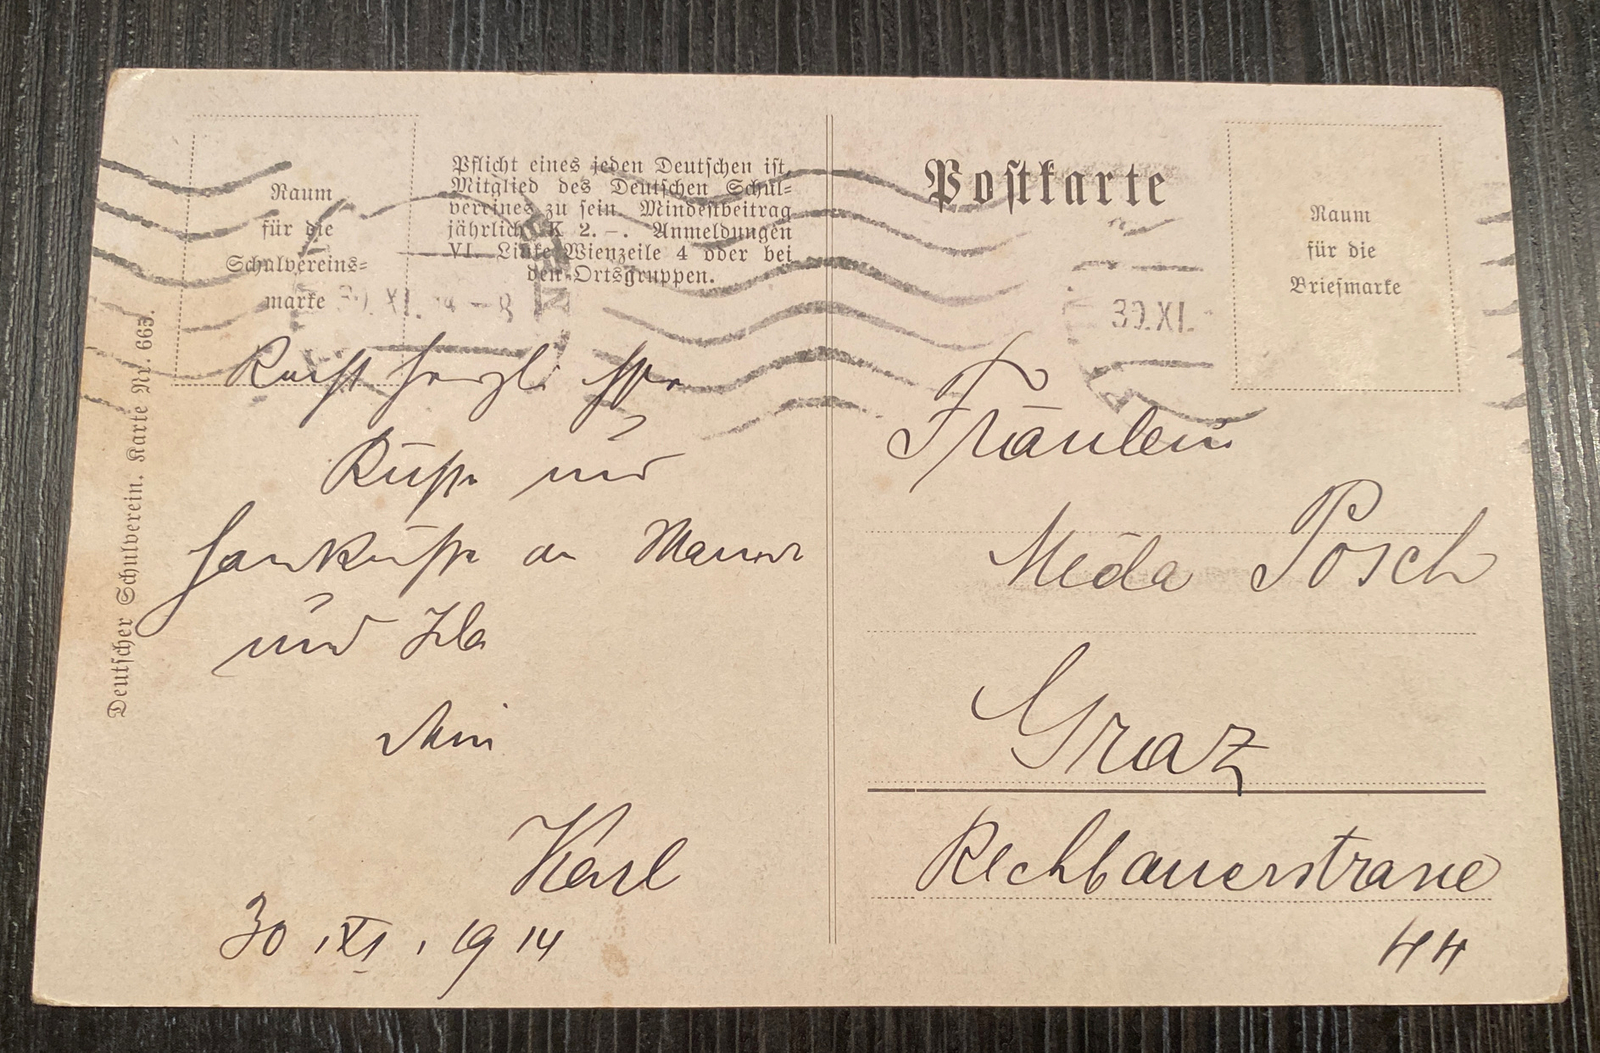 Raum
für die
Schulvereins-
marke
Pflicht eines jeden Deutschen ist,
Mitglied des Deutschen Schul-
vereines zu sein. Mindestbeitrag
jährlich K 2.–. Anmeldungen
VI. Linke Wienzeile 4 oder bei
den Ortsgruppen.
30. XI. 14 – 8
Deutscher Schulverein. Karte Nr. 665.
Recht herzl.
Küsse und
Handküsse an Mama
und Ida
Dein
Karl
30. XI. 1914
Postkarte
Raum
für die
Briefmarke
30. XI.
Fräulein
Meda Posch
Graz
Rechbauerstrasse
44